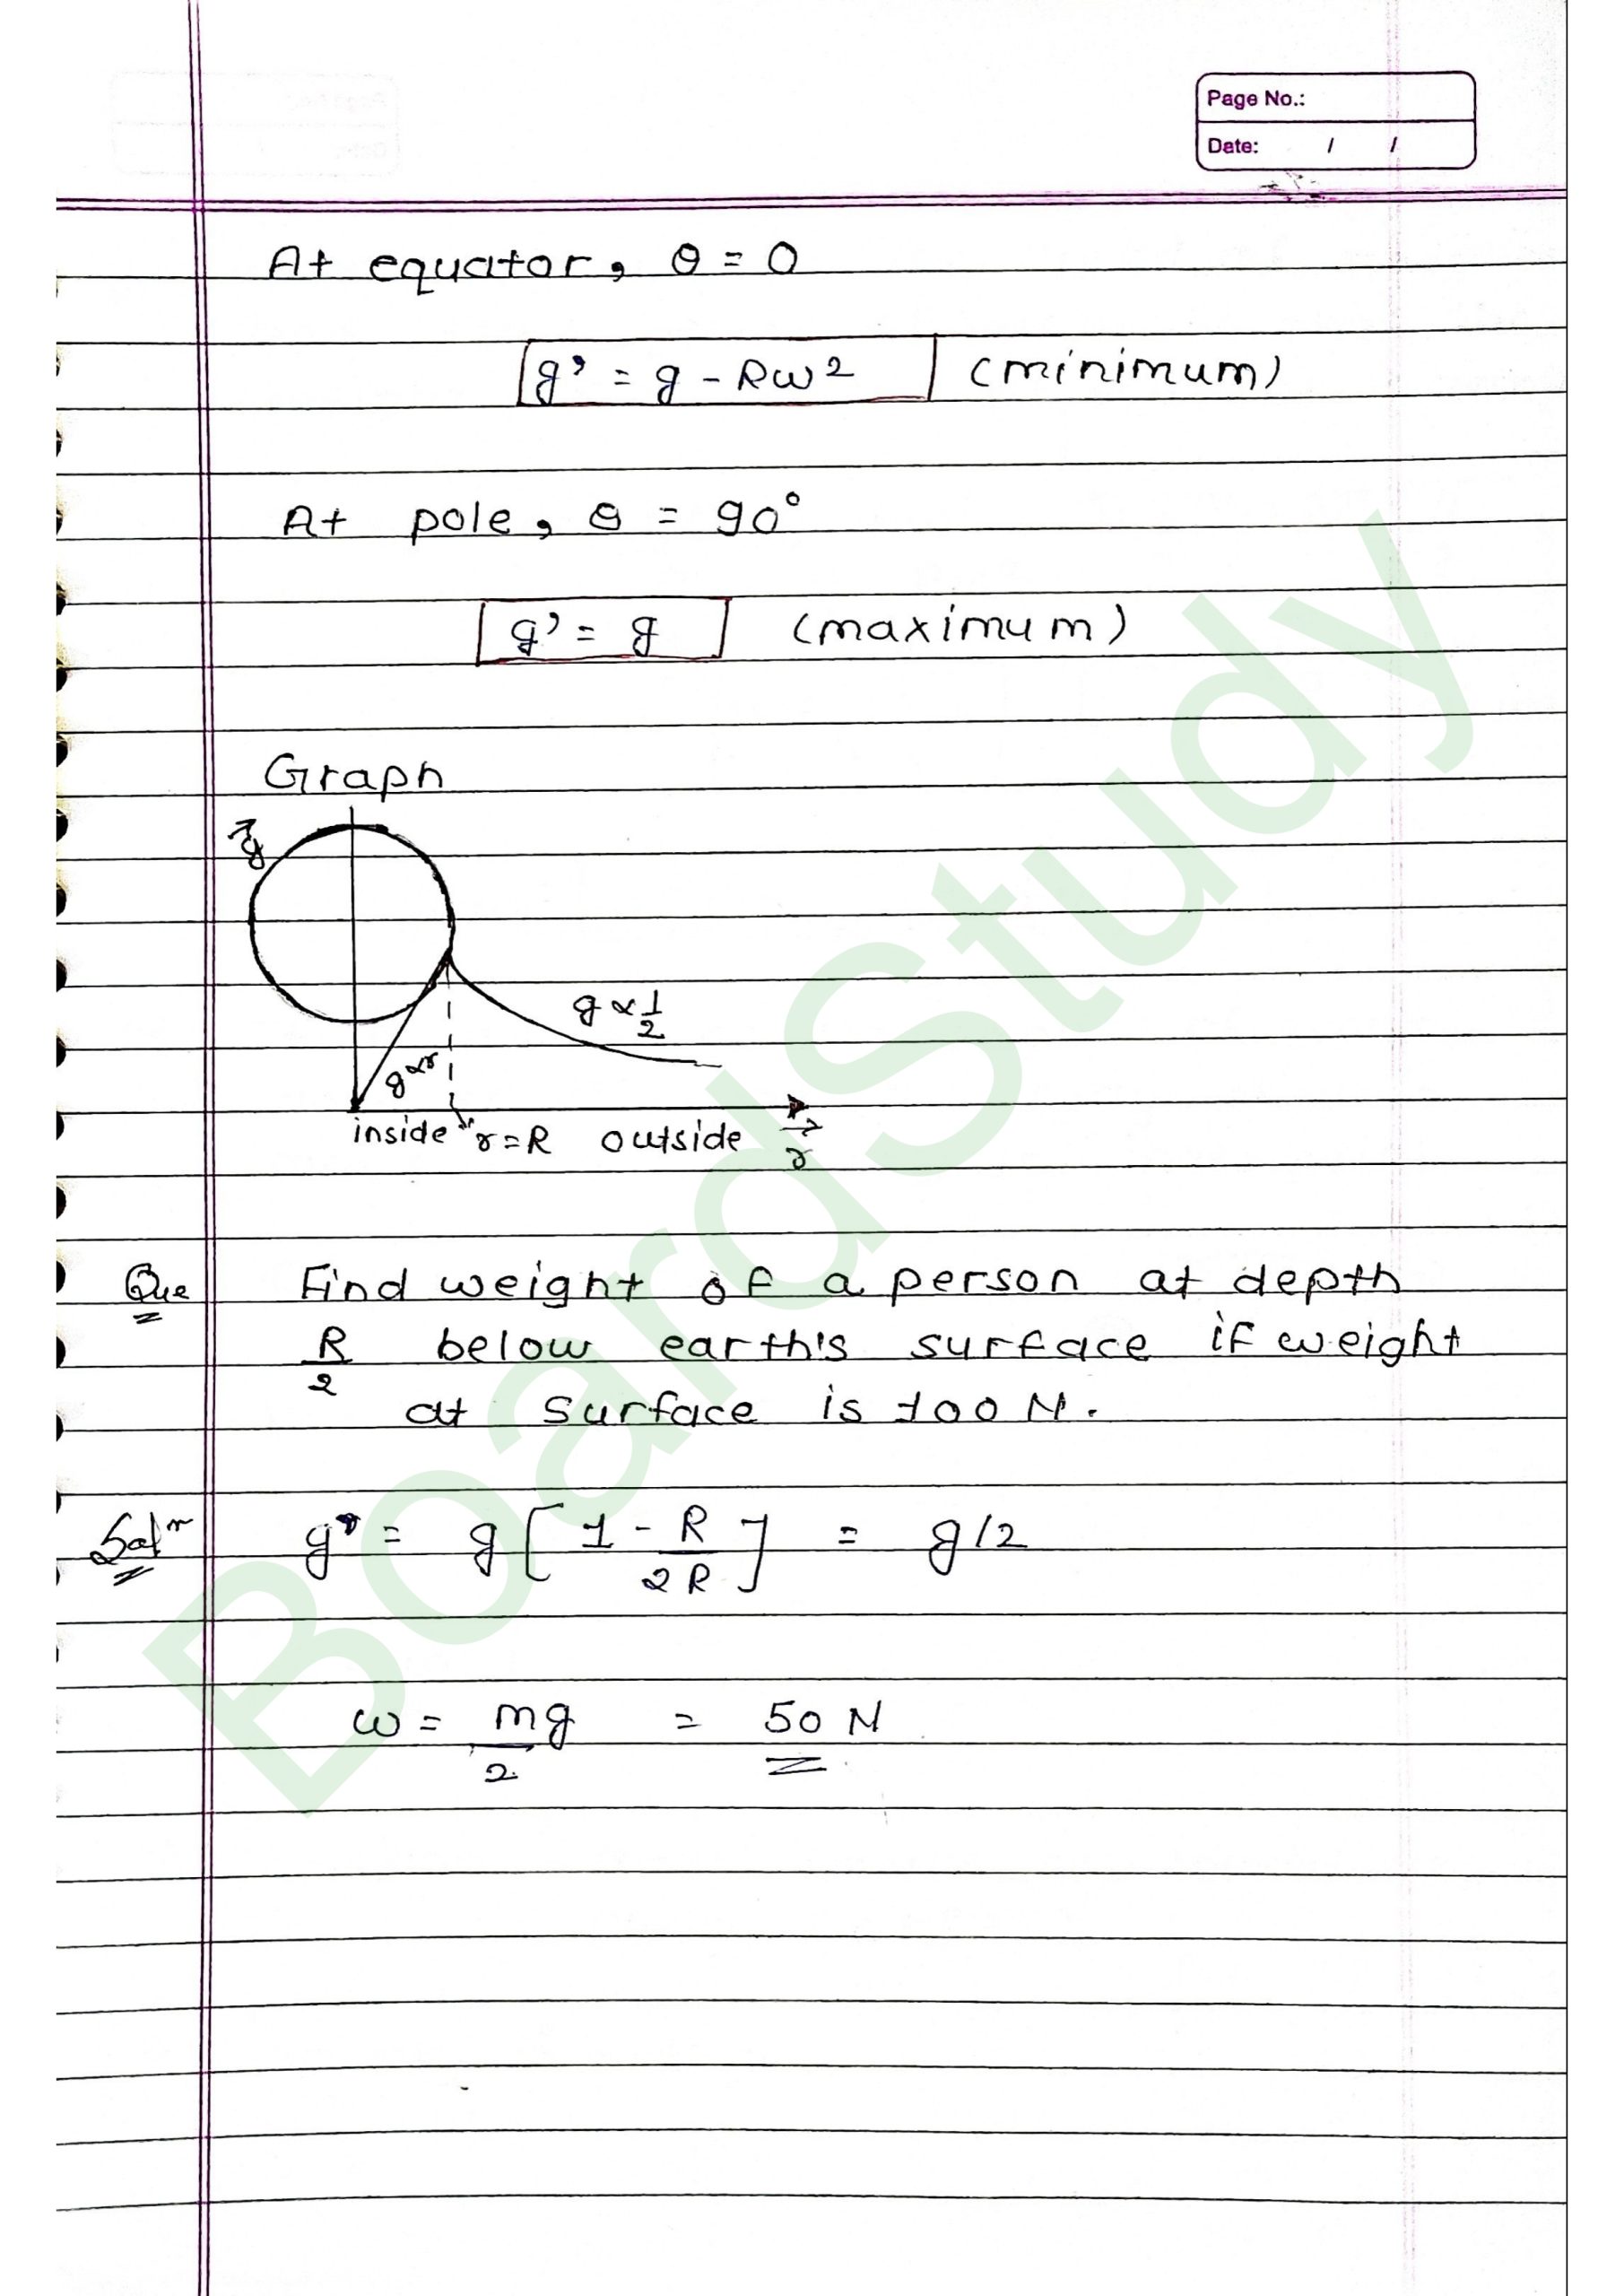 Page No.:
Date: / /
At equator, θ = 0
g' = g - Rω² (minimum)
At pole, θ = 90°
g' = g (maximum)
Graph
g⃗
g ∝ 1/2
g ∝ r
inside r = R outside r⃗
Que Find weight of a person at depth
R/2 below earth's surface if weight
at surface is 100 N.
Solⁿ g' = g [1 - R/2R] = g/2
ω = mg/2 = 50 N
BoardStudy